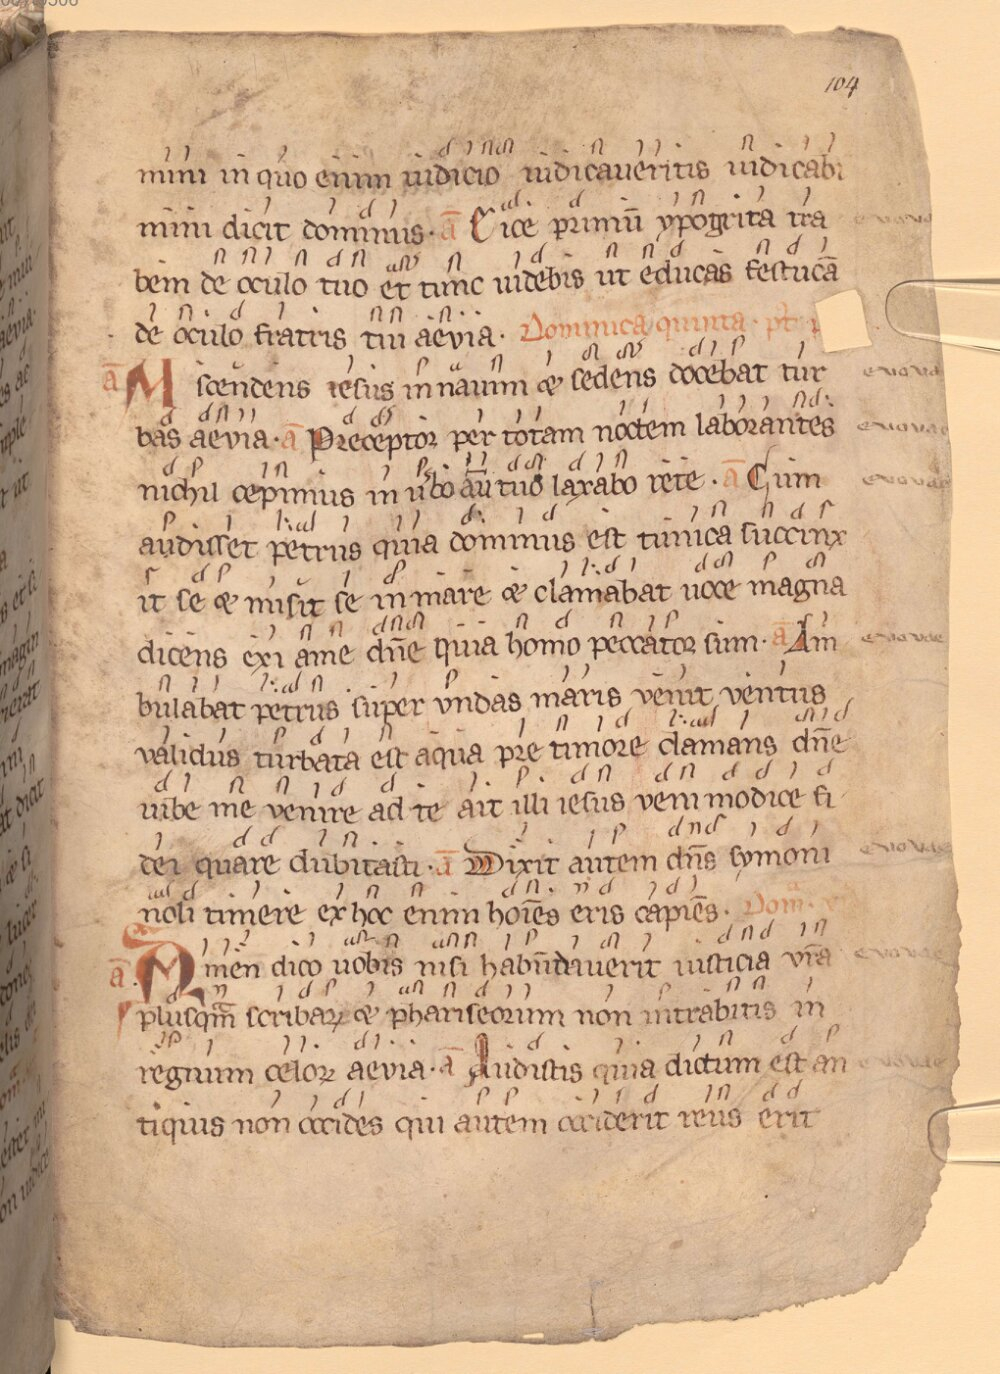 104
mini in quo enim iudicio iudicaueritis iudicabi
mini dicit dominus· a̅ Eice primu̅ ypogrita tra
bem de oculo tuo et tunc uidebis ut educas festuca̅
de oculo fratris tui aevia· Dominica quinta· p̅t
a̅ Ascendens iesus in nauim & sedens docebat tur
bas aevia· a̅ Preceptor per totam noctem laborantes
nichil cepimus in u̅bo au̅ tuo laxabo rete· a̅ Cum
audisset petrus quia dominus est tunica succinx
it se & misit se in mare & clamabat uoce magna
dicens exi a me dn̅e quia homo peccator sum· a̅ Am
bulabat petrus super vndas maris venit ventus
validus turbata est aqua pre timore clamans dn̅e
iube me venire ad te ait illi iesus veni modice fi
dei quare dubitasti· a̅ Dixit autem dn̅s symoni
noli timere ex hoc enim hoi̅es eris capie̅s· Dom̅·
a̅ Amen dico uobis nisi habu̅dauerit iusticia vr̅a
plusqm̅ scribaꝝ & phariseorum non intrabitis in
regnum celoꝝ aevia· a̅ Audistis quia dictum est an
tiquis non occides qui autem occiderit reus erit